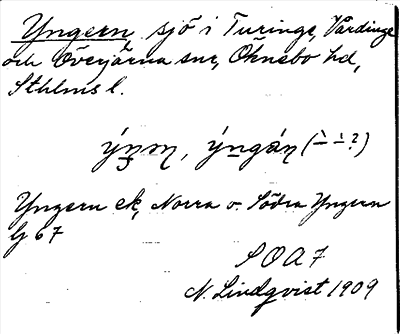 Yngern, sjö i Turinge, Vårdinge
och Överjärna snr, Öknebo hd,
Sthlms l.
Yngern ek, Norra o. Södra Yngern
Gj 67
SOA 7
N. Lindqvist 1909